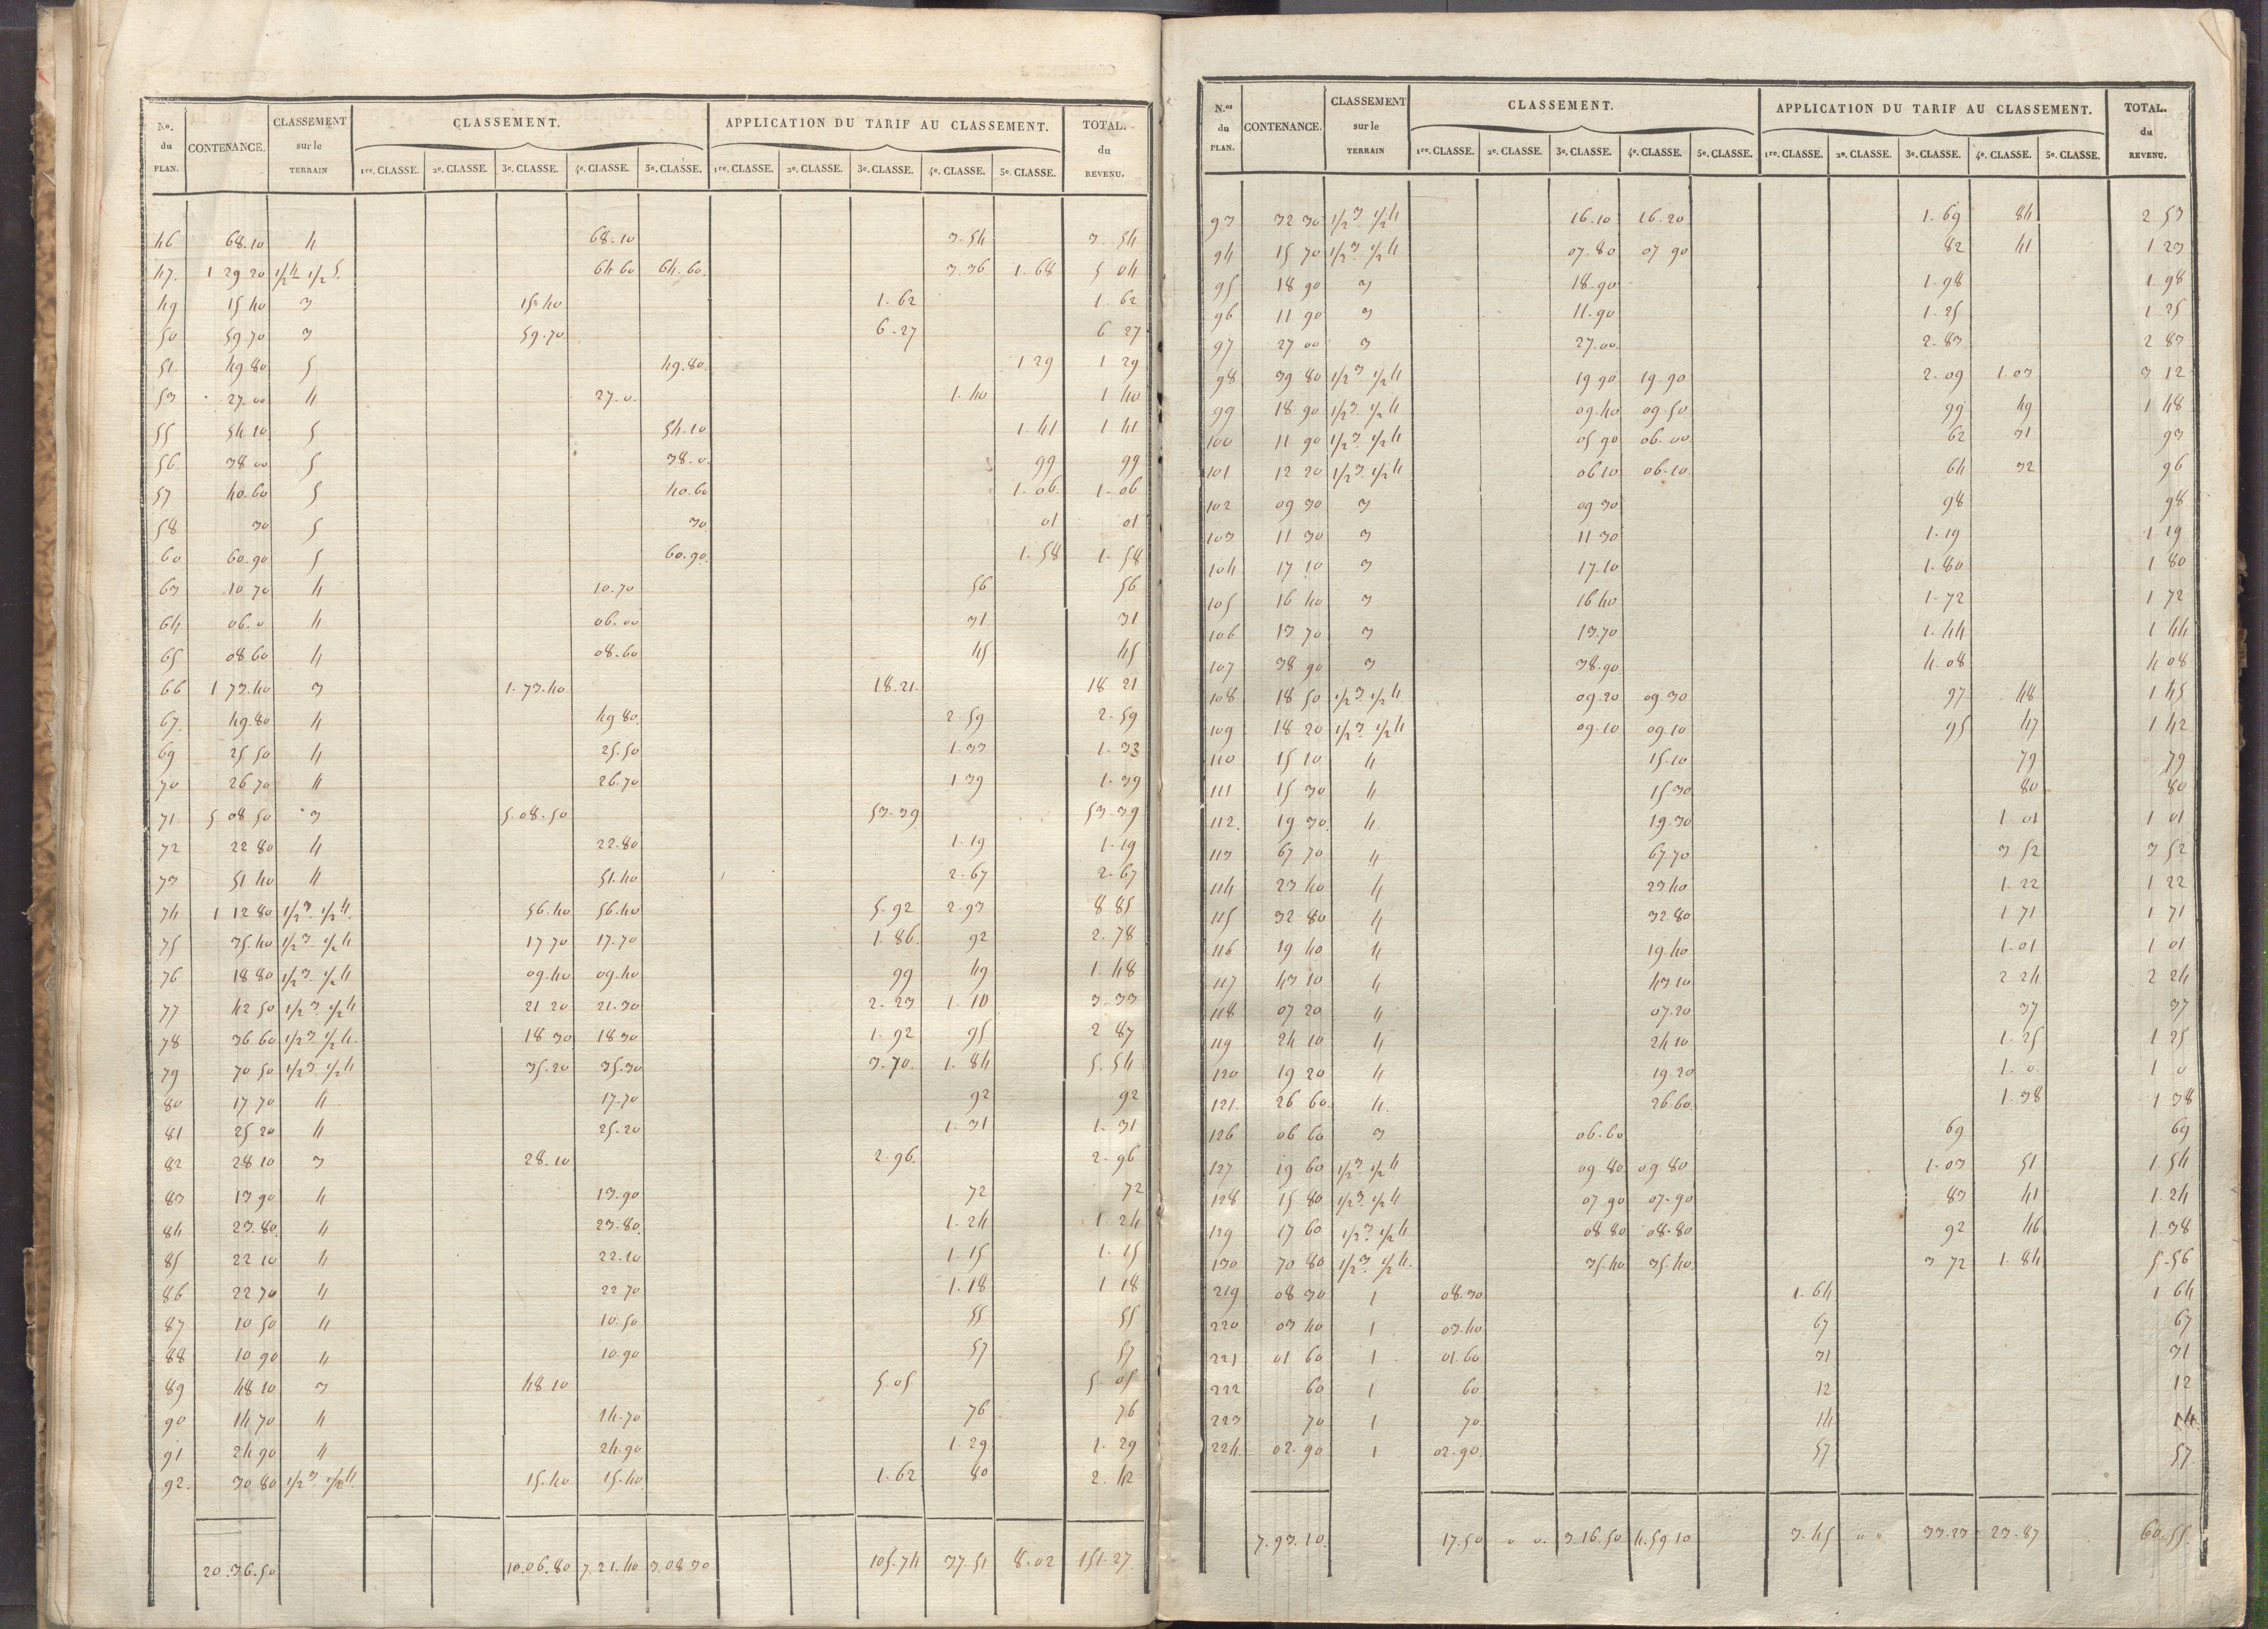 No. du PLAN. CONTENANCE. CLASSEMENT sur le TERRAIN CLASSEMENT. APPLICATION DU TARIF AU CLASSEMENT. TOTAL. du REVENU.
1re. CLASSE. 2e. CLASSE. 3e. CLASSE. 4e. CLASSE. 5e. CLASSE. 1re. CLASSE. 2e. CLASSE. 3e. CLASSE. 4e. CLASSE. 5e. CLASSE.
46 68.10 4 68.10 3.54 3.54
47. 1 29 20 1/2 4 1/2 5. 64 60 64.60. 3.36 1.68 5 04
49 15 40 3 15.40 1.62 1.62
50 59 70 3 59.70 6.27 6 27
51. 49.80 5 49.80. 1 29 1 29
53 27.00 4 27.0. 1.40 1 40
55 54.10 5 54.10 1.41 1 41
56. 38 00 5 38.0. 99 99
57 40.60 5 40.60 1.06. 1.06
58 30 5 30 01 01
60 60.90 5 60.90. 1.58 1.58
63 10 70 4 10.70 56 56
64 06.0 4 06.00 31 31
65 08 60 4 08.60 45 45
66 1 73.40 3 1.73.40 18.21. 18 21
67. 49.80 4 49 80. 2.59 2.59
69 25 50 4 25.50 1.33 1.33
70 26 70 4 26.70 1 39 1.39
71 5 08 50 3 5.08.50 53.39 53.39
72 22 80 4 22.80 1.19 1.19
73 51 40 4 51.40 2.67 2.67
74 1 12 80 1/2 3 1/2 4. 56.40 56.40 5.92 2.93 8 85
75 35 40 1/2 3 1/2 4 17 70 17.70 1.86. 92 2.78
76 18 80 1/2 3 1/2 4 09.40 09.40 99 49 1.48
77 42 50 1/2 3 1/2 4 21 20 21.30 2.23 1.10 3.33
78 36 60 1/2 3 1/2 4. 18 30 18 30 1.92 95 2 87
79 70 50 1/2 3 1/2 4 35.20 35.30 3.70. 1.84 5.54
80 17 70 4 17.70 92 92
81 25 20 4 25.20 1.31 1.31
82 28 10 3 28.10 2.96. 2.96
83 13 90 4 13.90 72 72
84 23.80. 4 23.80. 1.24 1.24
85 22 10 4 22.10 1.15 1.15
86 22 70 4 22 70 1.18 1 18
87 10 50 4 10.50 55 55
88 10 90 4 10.90 57 57
89 48 10 3 48 10 5.05 5.05
90 14 70 4 14.70 76 76
91 24 90 4 24.90 1.29 1.29
92. 30 80 1/2 3 1/2 4. 15.40 15.40 1.62 80 2.42
20.36.50 10.06.80 7.21.40 3.08 30 105.74 37.51 8.02 151.27
N.os du PLAN. CONTENANCE. CLASSEMENT sur le TERRAIN CLASSEMENT. APPLICATION DU TARIF AU CLASSEMENT. TOTAL. du REVENU.
1re. CLASSE. 2e. CLASSE. 3e. CLASSE. 4e. CLASSE. 5e. CLASSE. 1re. CLASSE. 2e. CLASSE. 3e. CLASSE. 4e. CLASSE. 5e. CLASSE.
93 32 30 1/2 3 1/2 4 16.10 16.20 1.69 84 2 53
94 15 70 1/2 3 1/2 4 07.80 07 90 82 41 1 23
95 18 90 3 18.90 1.98 1 98
96 11 90 3 11.90 1.25 1 25
97 27 00 3 27.00. 2.83 2 83
98 39 80 1/2 3 1/2 4 19 90 19 90 2.09 1.03 3 12
99 18 90 1/2 3 1/2 4 09.40 09.50 99 49 1 48
100 11 90 1/2 3 1/2 4 05 90 06.00 62 31 93
101 12 20 1/2 3 1/2 4 06 10 06.10 64 32 96
102 09 30 3 09 30 98 98
103 11 30 3 11 30 1.19 1 19
104 17 10 3 17.10 1.80 1 80
105 16 40 3 16 40 1.72 1 72
106 13 70 3 13.70 1.44 1 44
107 38 90 3 38.90 4.08 4 08
108 18 50 1/2 3 1/2 4. 09.20 09 30 97 48 1 45
109 18 20 1/2 3 1/2 4 09.10 09.10 95 47 1 42
110 15 10 4 15.10 79 79
111 15 30 4 15.30 80 80
112. 19 30. 4. 19.30 1 01 1 01
113 67 70 4 67.70 3 52 3 52
114 23 40 4 23 40 1.22 1 22
115 32 80 4 32.80 1.71 1 71
116 19 40 4 19.40 1.01 1 01
117 43 10 4 43.10 2 24 2 24
118 07 20 4 07.20 37 37
119 24 10 4 24 10 1.25 1 25
120 19 20 4 19.20 1.0. 1 0
121. 26 60. 4. 26.60. 1.38 1 38
126 06 60 3 06.60 69 69
127 19 60 1/2 3 1/2 4 09 80 09.80 1.03 51 1.54
128 15 80 1/2 3 1/2 4 07 90 07.90 83 41 1.24
129 17 60 1/2 3 1/2 4 08 80 08.80 92 46 1.38
130 70 80 1/2 3 1/2 4. 35.40 35.40. 3 72 1.84 5.56
219 08 30 1 08.30 1.64 1 64
220 03 40 1 03.40 67 67
221 01 60 1 01.60 31 31
222 60 1 60 12 12
223 70 1 70 14 14
224 02.90 1 02.90. 57 57
7.93.10. 17.50 0 0. 3.16.50 4.59 10 3.45 0 0 33.23 23.87 60.55.